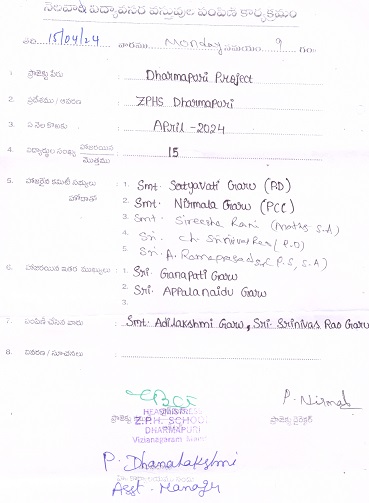 నెలవారీ విద్యావసర వస్తువుల పంపిణీ కార్యక్రమం
తేది 15/04/24 వారము Monday సమయం 9 గం॥
1. ప్రాజెక్టు పేరు : Dharmapuri Project
2. ప్రదేశము / ఆవరణ : ZPHS Dharmapuri
3. ఏ నెల కొరకు : April - 2024
4. విద్యార్థుల సంఖ్య హాజరయిన / మొత్తము : 15
5. హాజరైన కమిటీ సభ్యులు : 1. Smt. Satyavati Garu (RD)
హోదాతో 2. Smt. Nirmala Garu (PCC)
3. Smt. Sireesha Rani (Maths S.A)
4. Sri. Ch. Srinivas Rao (P.D)
5. Sri. A. Ramaprasad (P.S, S.A)
6. హాజరయిన ఇతర ముఖ్యులు : 1. Sri. Ganapati Garu
2. Sri. Appalanaidu Garu
3.
7. పంపిణీ చేసిన వారు : Smt. Adilakshmi Garu, Sri. Srinivas Rao Garu
8. వివరణ / సూచనలు :
P. Nirmal
ప్రాజెక్టు డైరెక్టర్
HEADMISTRESS
Z.P.H. SCHOOL
DHARMAPURI
Vizianagaram
P. Dhanalakshmi
Asst. Manager